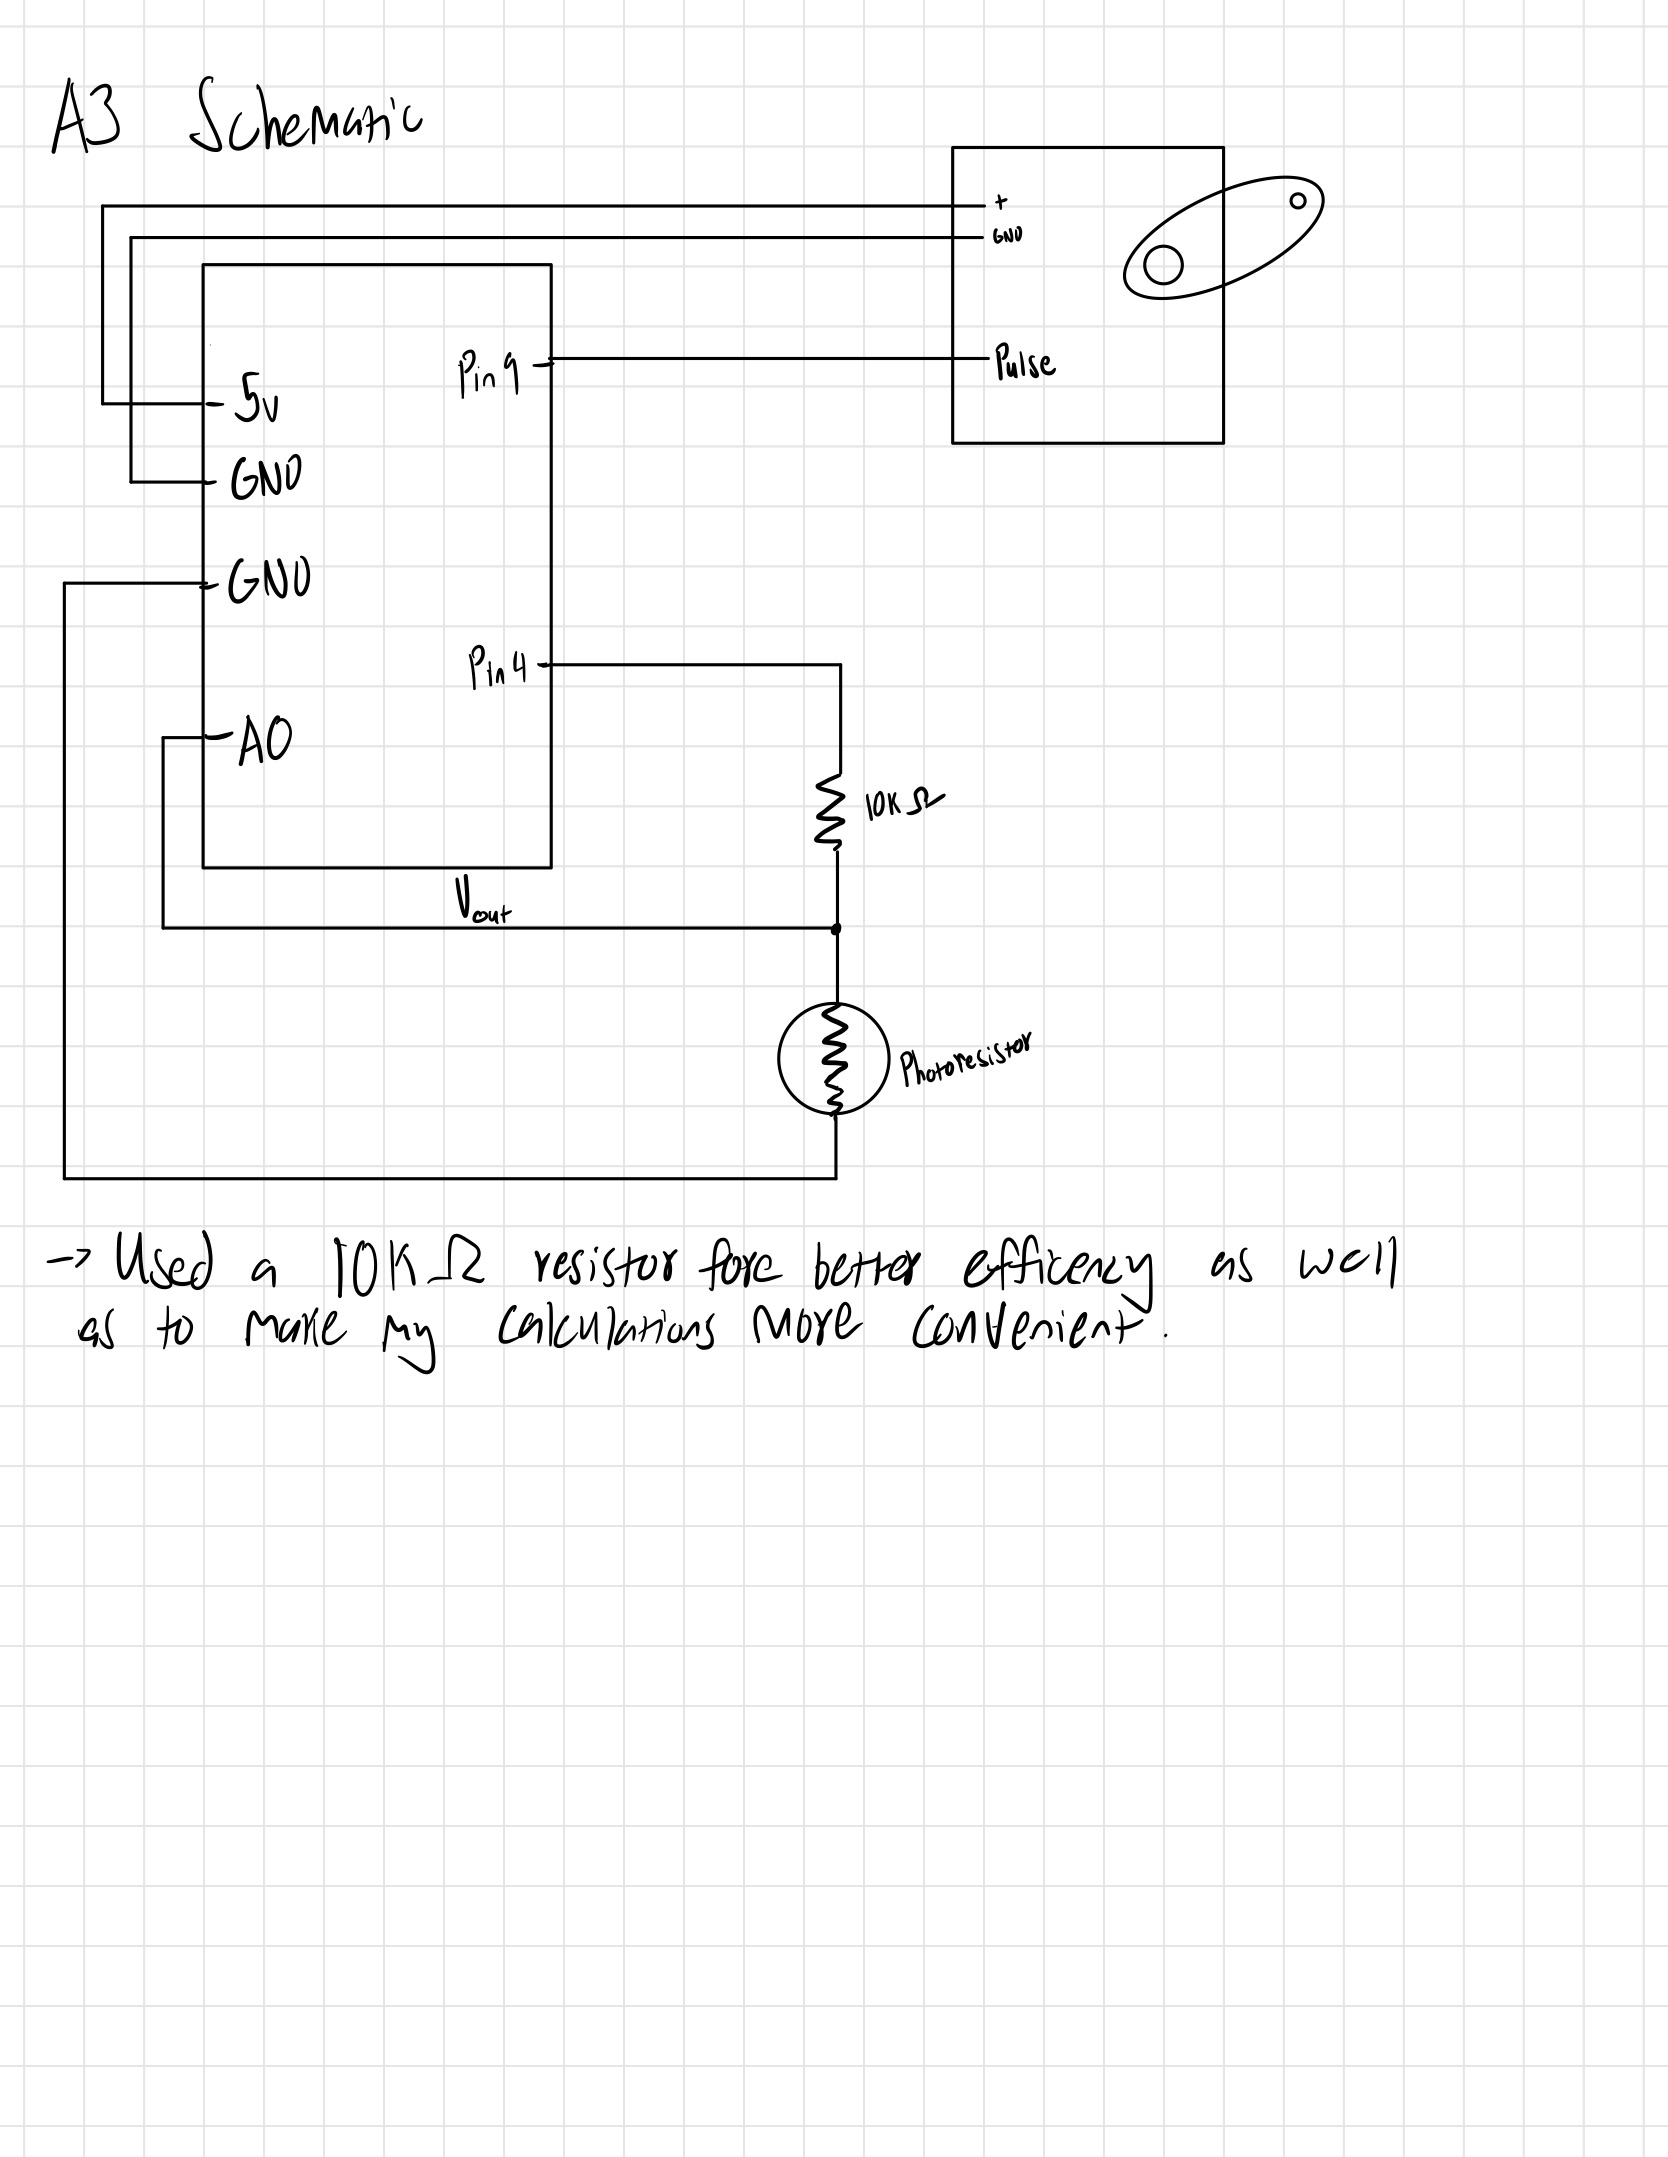 A3 Schematic
+
GND
Pin 9
Pulse
5v
GND
GND
Pin 4
A0
10K Ω
Vout
Photoresistor
→ Used a 10K Ω resistor fore better efficency as well
as to make my calculations more convenient.